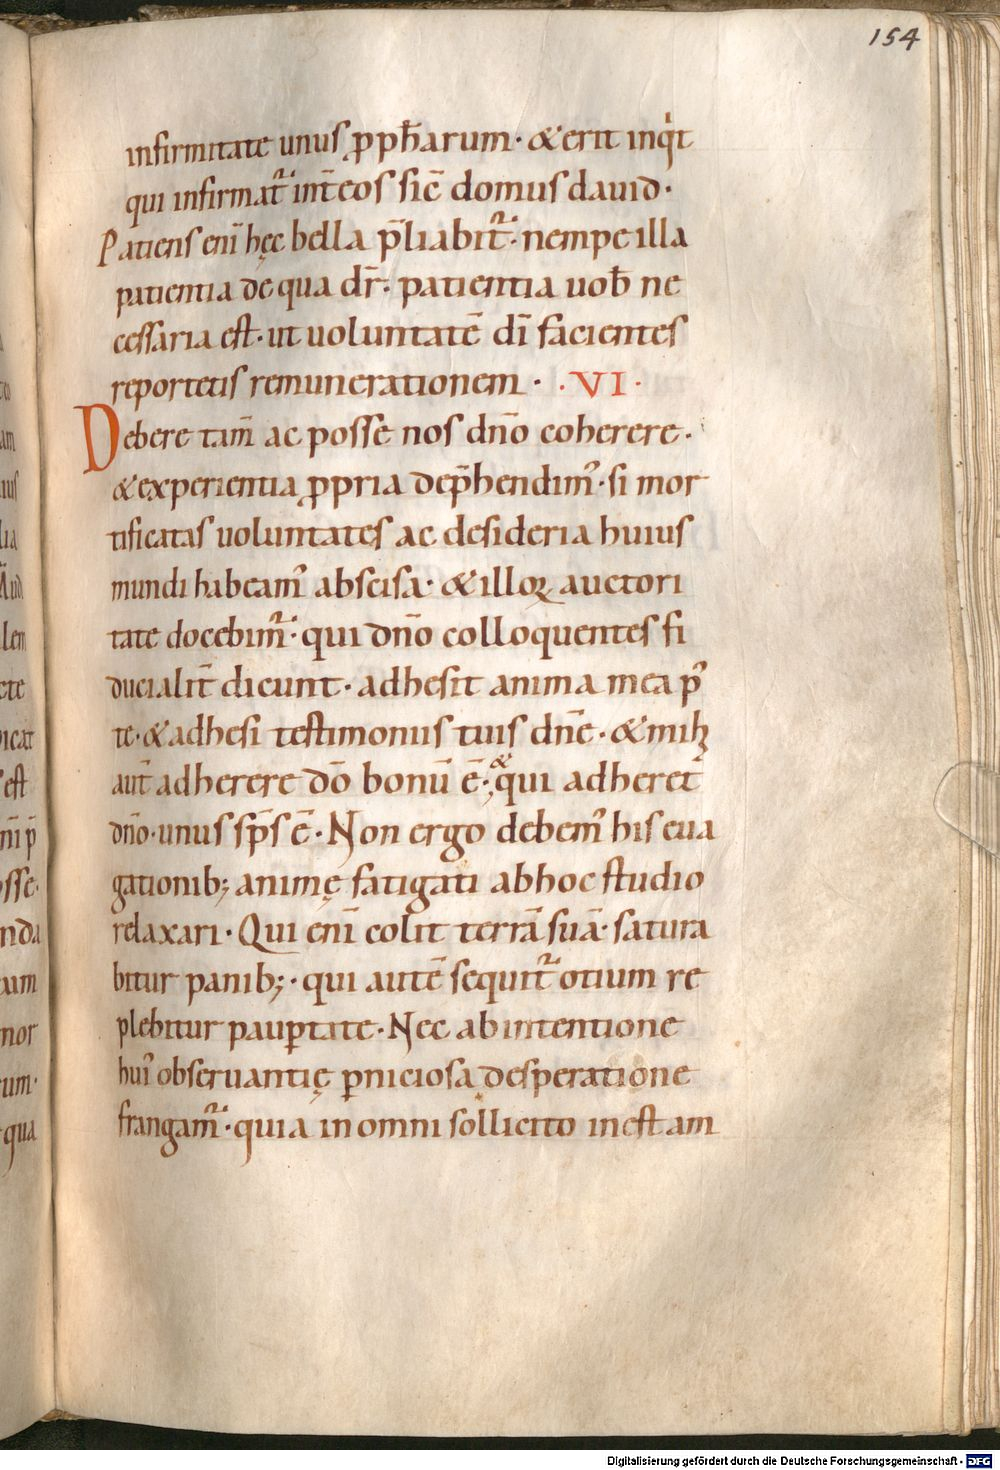 154
infirmitate unus ꝓph̄arum · & erit inqͥt
qui infirmat᷑ int̄ eos sic̄ domus dauid ·
Patiens eni̅ hęc bella p̄liabit᷑ · nempe illa
patientia de qua dr̄ · patientia uob̄ ne
cessaria est · ut uoluntatē dī facientes
reportetis remunerationem · · VI ·
Debere tam̄ ac posse nos dn̄o coherere ·
& experientia ꝓpria dep̄hendimꝰ · si mor
tificatas uoluntates ac desideria huius
mundi habeamꝰ abscisa · & illoꝝ auctori
tate docebim᷑ · qui dn̄o colloquentes fi
ducialit̄ dicunt · adhesit anima mea pꝰ
te · & adhesi testimoniis tuis dn̄e · & mihꝫ
aut̄ adherere dō bonū ē · & qui adheret
dn̄o · unus sp̄s ē · Non ergo debemꝰ his eua
gationib; animę fatigati ab hoc studio
relaxari · Qui enī colit terrā suā · satura
bitur panib; · qui autē sequit᷑ otium re
plebitur pauꝑtate · Nec ab intentione
huiꝰ obseruantię ꝑniciosa desperatione
frangam᷑ · quia in omni sollicito inest am
Digitalisierung gefördert durch die Deutsche Forschungsgemeinschaft - DFG